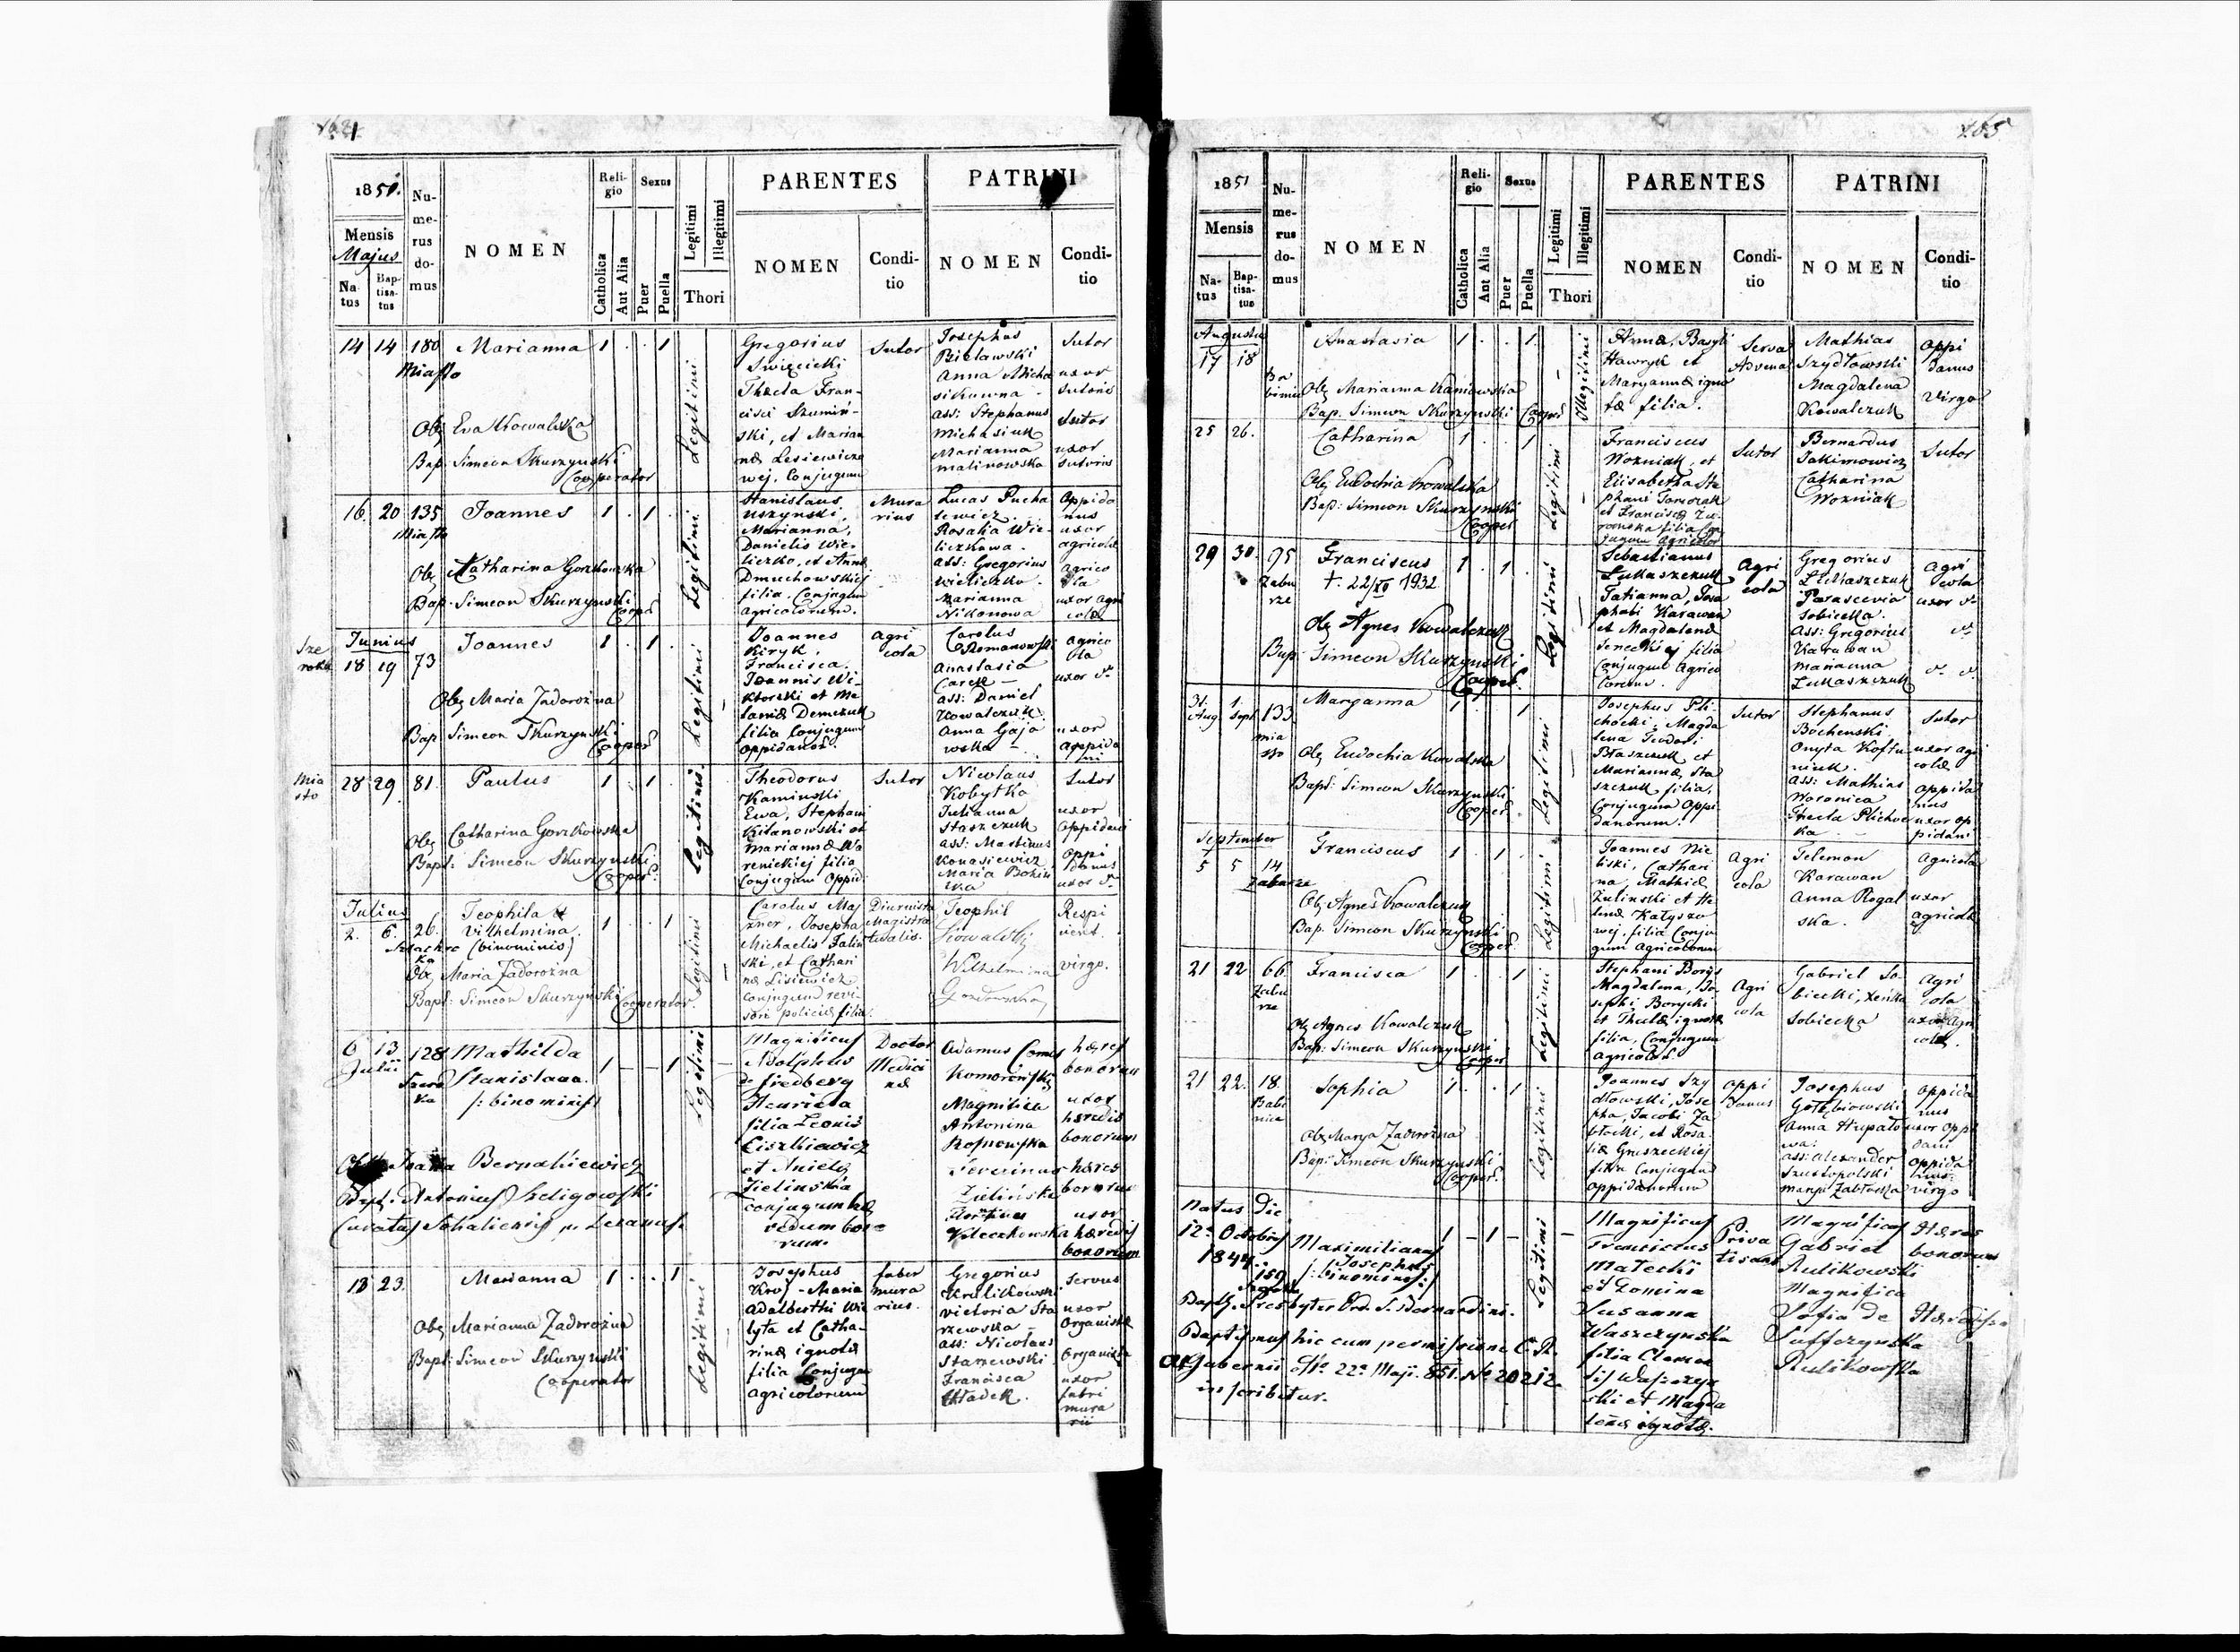 1851.
Mensis
Majus
Na-
tus
Bap-
tisa-
tus
Nu-
me-
rus
do-
mus
NOMEN
Reli-
gio
Catholica
Aut Alia
Sexus
Puer
Puella
Legitimi
Illegitimi
Thori
PARENTES
NOMEN
Condi-
tio
PATRINI
NOMEN
Condi-
tio
14 14 180 Marianna 1 . . 1
Miasto
Obs Eva Kowalska
Bap: Simeon Skurzynski
Cooperator
Legitimi
Gregorius
Swięcicki
Thecla Fran-
cisci Szumiń-
ski, et Marian
næ Lesiewicze
wej, Conjugum
Sutor
Josephus
Bielawski
Anna Micha
sikowna -
Ass: Stephanus
Michasiuk
Marianna
Malinowska
Sutor
uxor
Sutoris
Sutor
uxor
Sutoris
16. 20 135 Joannes 1 . 1 .
Miasto
Obs Katharina Gorzkowska
Bap: Simeon Skurzynski
Coopr
Legitimi
Stanislaus
Uszynski,
Marianna,
Danielis Wie-
liczko, et Annæ
Dmuchowskiej
filia, Conjugum
Agricolorum.
Mura
rius
Lucas Pucha
lewicz
Rosalia Wie-
liczkowa.
Ass: Gregorius
Wieliczko.
Marianna
Nikonowa
Oppida
nus
uxor
agricolæ
Agrico
la
uxor Agri
colæ
Sze
roka
Junius
18 19 73 Joannes 1 . 1 .
Obs Maria Zadorozna
Bap: Simeon Skurzynski
Cooper
Legitimi
Joannes
Kiryk,
Francisca,
Joannis Wi-
ktorski et Me
laniæ Demczuk
filia Conjugum
Oppidanor.
Agri
cola
Carolus
Romanowski
Anastasia
Carek -
Ass: Daniel
Kowalczuk
Anna Gajo
wska -
Agrico
la
uxor
uxor
Oppida
ni
Mia
sto
28 29 81. Paulus 1 . 1 .
Obs Catharina Gorzkowska
Bapt: Simeon Skurzynski
Cooper:
Legitimi
Theodorus
Kaminski
Ewa, Stephani
Kitanowski et
Mariannæ Wa
renickiej filia
Conjugum Oppid:
Sutor
Nicolaus
Kobyłko
Julianna
Staszczuk
Ass: Martinus
Konasiewicz
Maria
Sutor
uxor
Oppidani
Oppi
danus
uxor
Julius
2. 6. 26. Teophila et
Vilhelmina,
(binominis) 1 . . 1
Obs Maria Zadorozna
Bapt: Simeon Skurzynski Cooperator
Legitimi
Carolus Maj
zner, Josepha
Michaelis Jalin
ski, et Cathari
næ Lisiewicz
Conjugum revi-
soris policiæ filia.
Diurnista
Magistra
tualis.
Teophil
Wilhelmina
Respi
cient.
Virgo.
6 13 128 Mathilda
Julii
Szero
ka
Stanislava.
/: binominis/ 1 - - 1
Bernakiewicz
Bapt: Antonius Szeligowski
Curatus
Legitimi
Magnificus
Adolphus
de Fredberg
Henrieta
filia Leonis
Ciszkiewicz
et Anielæ
Zielinska
conjugum hæ
redum bono
rum.
Doctor
Medici
næ
Adamus Comes
Komorowski
Magnifica
Antonina
Severinus
Zieliński
hæres
bonorum
uxor
hæredis
bonorum
hæres
bonorum
uxor
hæredis
bonorum
18 23. Marianna 1 . . 1
Obs Marianna Zadorozna
Bapt: Simeon Skurzynski
Cooperator
Legitimi
Josephus
Kroj - Maria
Adalberthi Wie
lyta et Catha-
rinæ ignotæ
filia Conjugum
Agricolorum
faber
mura
rius.
Gregorius
Krulikowski
Victoria Sta
rzewska -
Ass: Nicolaus
Starzewski
Francisca
Władek.
Servus
uxor
Organistæ
Organista
uxor
fabri
mura
rii
265
1851
Mensis
Na-
tus
Bap-
tisa-
tus
Nu-
me-
rus
do-
mus
NOMEN
Reli-
gio
Catholica
Aut Alia
Sexus
Puer
Puella
Legitimi
Illegitimi
Thori
PARENTES
NOMEN
Condi-
tio
PATRINI
NOMEN
Condi-
tio
Augustus
17 18 Anastasia 1 . . 1
Obs Marianna Kaniowska
Bap. Simeon Skurzynski Cooper
Illegitimi
Annæ, Basyli
Hawryk et
Maryannæ igno
tæ filia.
Serva
Advena
Mathias
Szydłowski
Magdalena
Kowalczuk
Oppi
danus
Virgo
25 26. Catharina 1 . . 1
Obs Eudochia Kowalska
Bap: Simeon Skurzynski
Cooper
Legitimi
Franciscus
Wozniak, et
Elisabetha Ste
phani Tomczak
Sutor
Bernardus
Jakimowicz
Catharina
Wozniak
Sutor
29 30. 95 Franciscus 1 . 1 .
Zabu
rze
†. 22/XI 1932
Obs Agnes Kowalczuk
Bap: Simeon Skurzynski
Cooper.
Legitimi
Sebastianus
Lukaszczuk
Tatianna, Josa
phati Karawan
et Magdalenæ
Seneckiej filia
Conjugum Agrico
larum.
Agri
cola
Gregorius
Lukaszczuk
Parascevia
Sobiecka.
Ass: Gregorius
Karawan
Marianna
Lukaszczuk
Agri
cola
uxor
31. 1
Aug Sept 133 Maryanna 1 . . 1
mia
sto
Obs Eudochia Kowalska
Bapt: Simeon Skurzynski
Cooper.
Legitimi
Josephus Pli-
chocki, Magda
lena Teodori
Błaszczuk et
Mariannæ Sta
szczuk filia,
Conjugum Oppi
danorum.
Sutor
Stephanus
Bochenski
Onyta Koftu
niuk.
Ass: Mathias
Woronica
Thecla Plichoc
ka
Sutor
uxor agri
colæ
Oppida
nus
uxor op
pidani
September
5 5 14 Franciscus 1 . 1 .
Zaburze
Obs Agnes Kowalczuk
Bap. Simeon Skurzynski
Cooper
Legitimi
Joannes Nie
biski, Cathari
na, Mathiæ
Żulinski et He
lenæ Katyszo
wej, filia Conju
gum Agricolorum
Agri
cola
Telemon
Karawan
Anna Rogal
ska.
Agricola
uxor
agricolæ
21 22 66 Francisca 1 . . 1
Zabu
rze
Obs Agnes Kowalczuk
Bap: Simeon Skurzynski
Cooper
Legitimi
Stephani Borys
Magdalena, Jo
sephi Borycki
et Theclæ ignotæ
filia, Conjugum
Agricolor.
Agri
cola
Gabriel So-
biecki, Xenka
Sobiecka
Agri
cola
uxor Agri
colæ.
21 22. 18. Sophia 1 . . 1
Babi
nica
Obs Marya Zadrozna
Bap: Simeon Skurzynski
Cooper.
Legitimi
Joannes Szy
dłowski, Jose
pha, Jacobi Za
błocki, et Rosa
liæ Gruszeckiej
filia Conjugum
Oppidanorum
Oppi
danus
Josephus
Gołębiowski
Anna Hupało
wa:
Ass: Alexander
Szustopolski
Marya Zabłocka
Oppida
nus
uxor Oppi
dani
Oppida
nus:
virgo
Natus Die
12a Octobris
1844. Maximilianus
Josephus
/: binominis :/ 1 - 1 - -
159
Bapt. Presbyter Ord. S. Bernardini.
Baptismus hic cum permissione C. R.
Gubernii dto 22a Maji. 851. No 20212.
inscribitur.
Legitimi
Magnificus
Franciscus
Matecki
et Domina
Susanna
Waszczynska
filia Clemen
tis Waszczyn
ski et Magda
lenæ ignotæ.
Priva
tisans
Magnificus
Gabriel
Rulikowski
Magnifica
Zofia de
Rulikowska
Hæres
bonorum
Hæredissa